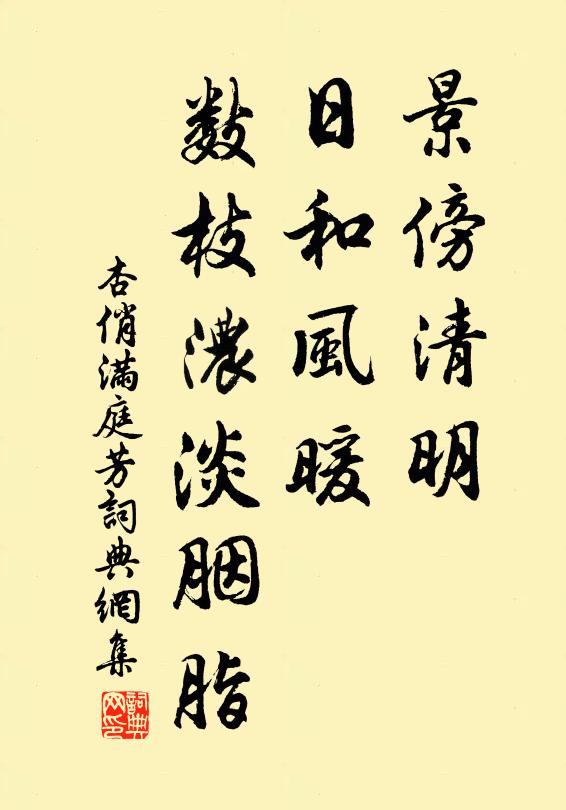 景傍清明
日和風暖
數枝濃淡胭脂
杏俏滿庭芳詞典網集
詞典網印